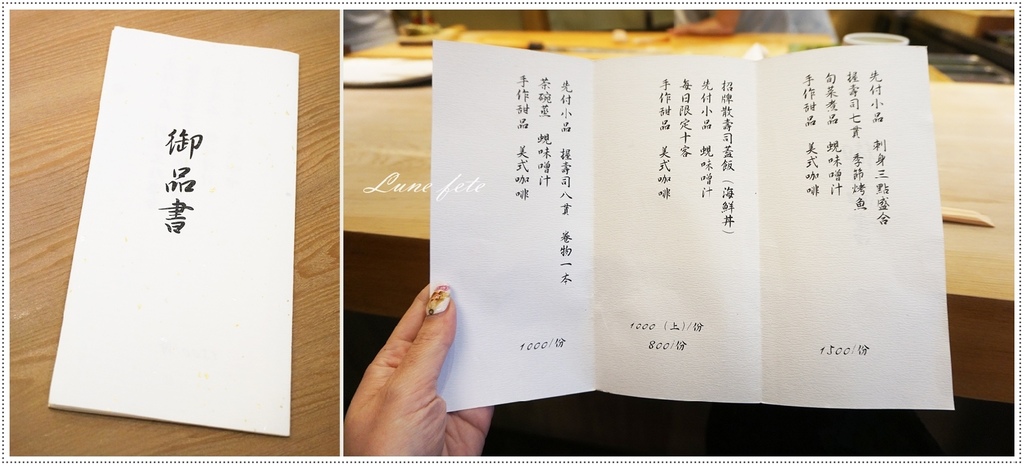 御品書
先付小品 刺身三點盛合
握壽司七貫 季節烤魚
旬菜煮品 蜆味噌汁
手作甜品 美式咖啡
1500/份
招牌散壽司蓋飯(海鮮丼)
先付小品 蜆味噌汁
每日限定十客
手作甜品 美式咖啡
1000(上)/份
800/份
先付小品 握壽司八貫 卷物一本
茶碗蒸 蜆味噌汁
手作甜品 美式咖啡
1000/份
Lune fete